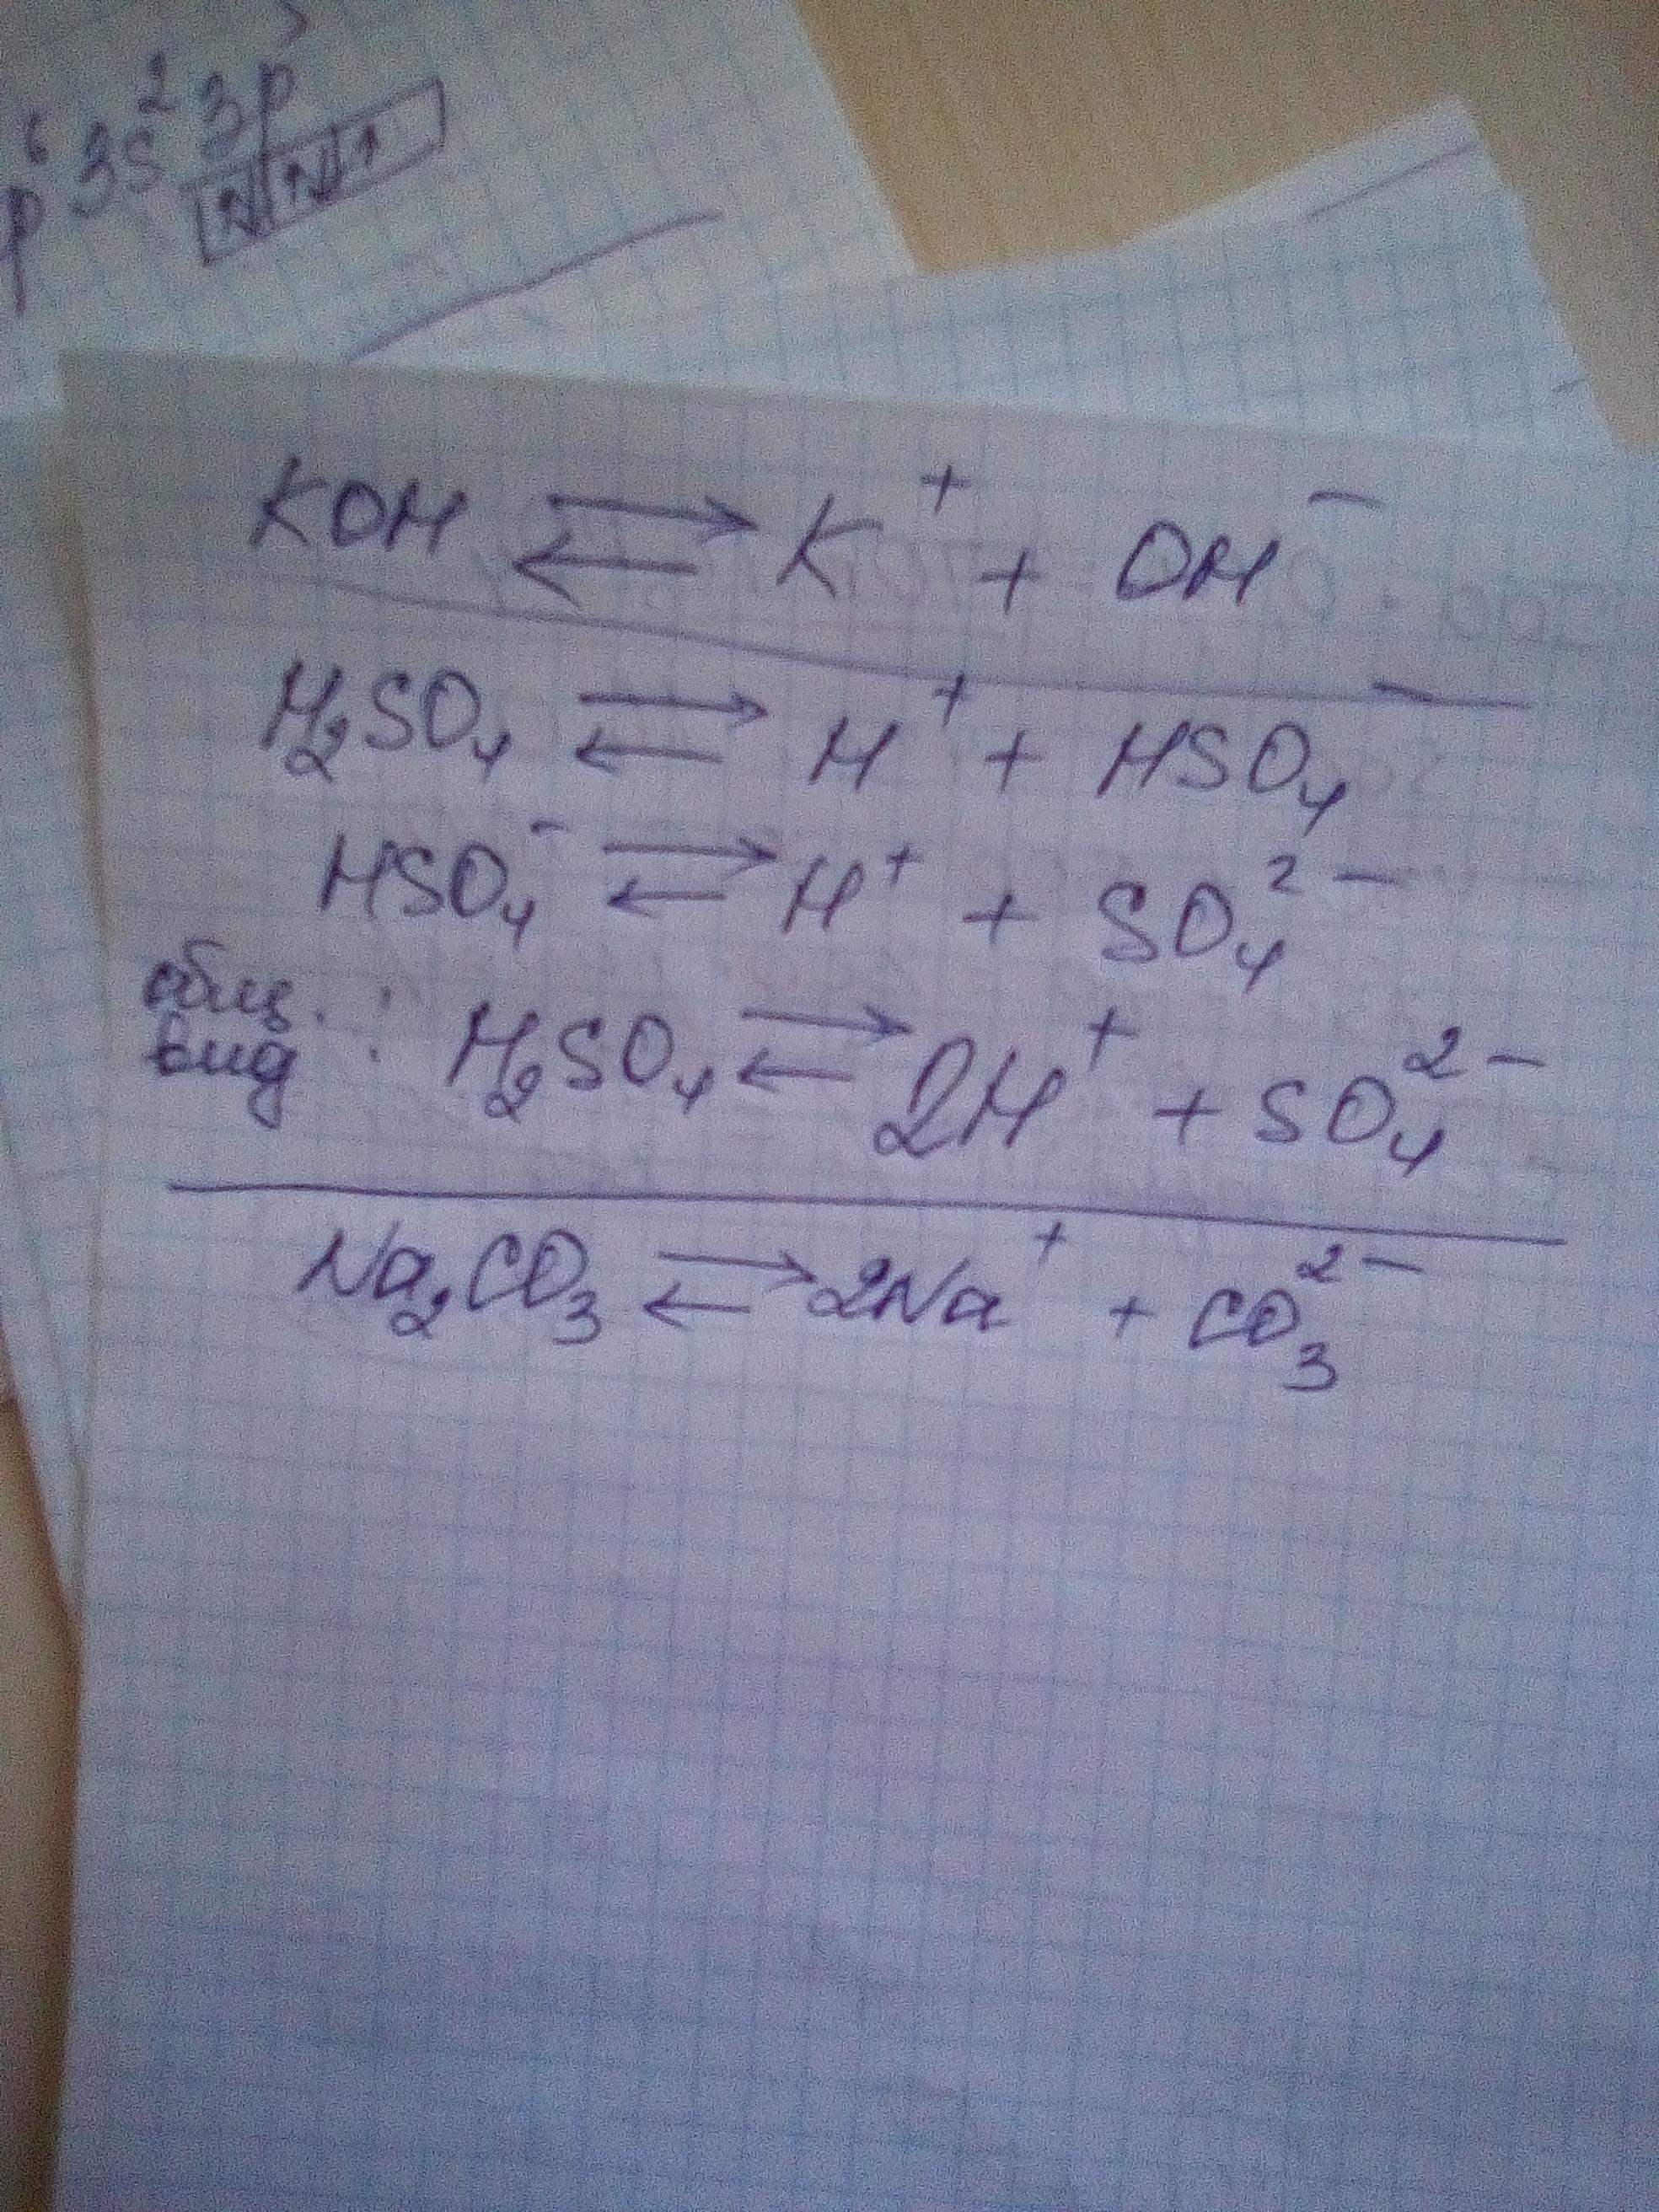 p⁶ 3s² 3p
KOH ⇄ K⁺ + OH⁻
H₂SO₄ ⇄ H⁺ + HSO₄⁻
HSO₄⁻ ⇄ H⁺ + SO₄²⁻
общ. вид : H₂SO₄ ⇄ 2H⁺ + SO₄²⁻
Na₂CO₃ ⇄ 2Na⁺ + CO₃²⁻